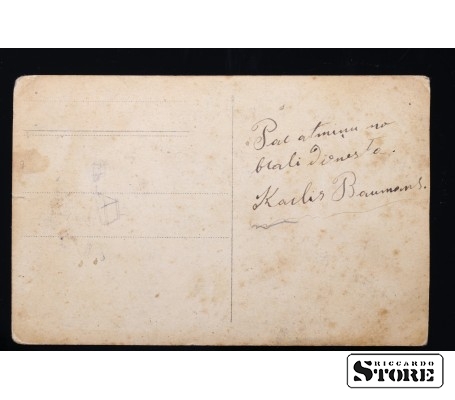 Par atmiņu no
brāli Dienestē.
Karlis Baumans.
RICCARDO
STORE